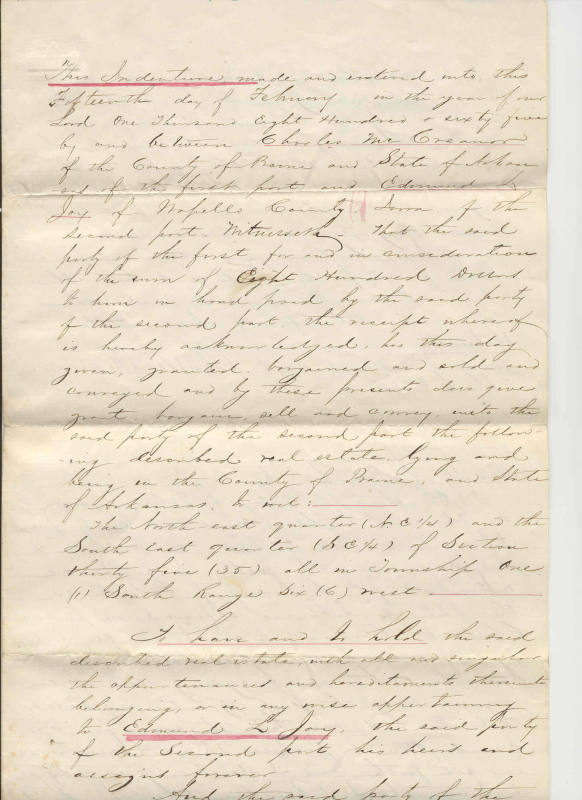 This Indenture, made and entered into this
Fifteenth day of February in the year of our
Lord One Thousand Eight Hundred & sixty five
by and between Charles Mc Creanor
of the County of Prairie and State of Arkan
-sas of the first part and Edmund L
Joy of Wapello County. Iowa of the
second part. Witnesseth, That the said
party of the first, for and in consideration
of the sum of Eight Hundred Dollars
to him in hand paid by the said party
of the second part, the receipt whereof
is hereby acknowledged, has this day
given, granted, bargained and sold and
conveyed and by these presents does give
grant, bargain, sell and convey, unto the
said party of the second part the follow-
-ing described real estate, lying and
being in the County of Prairie, and State
of Arkansas, to wit:
The North east quarter (N. E 1/4) and the
South East quarter (S E 1/4) of Section
thirty five (35) all in Township One
(1) South Range Six (6) west
To have and to hold the said
described real estate, with all and singular
the appurtenances and hereditaments thereunto
belonging, or in any wise appertaining
to Edmund L Joy, the said party
of the Second part his heirs and
assigns forever
And the said party of the